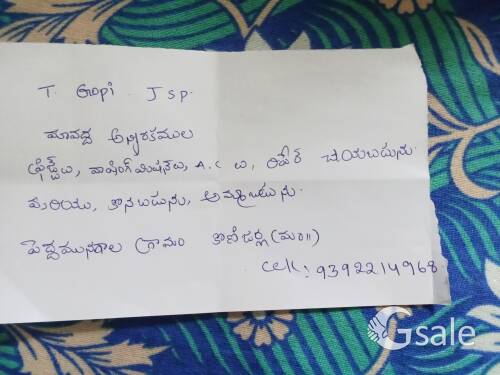 T. Gopi Jsp.
మావద్ద అన్నిరకముల
ఫ్రిడ్జ్‌లు, వాషింగ్ మిషన్‌లు, A.C లు, రిపేర్ చేయబడును.
మరియు, కొనబడును, అమ్మబడును.
పెద్దమునగాల గ్రామం కొణిజర్ల (మం॥)
Cell: 9392214968
Gsale